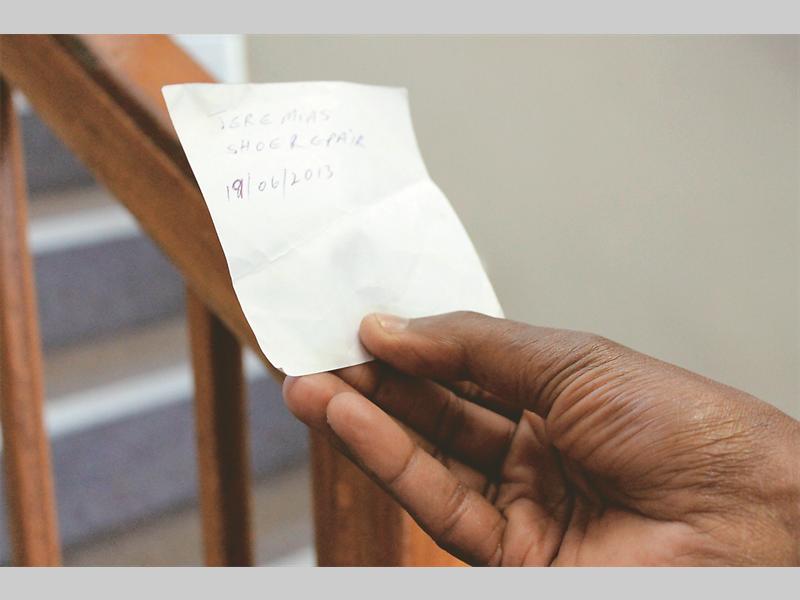 JEREMIAS
SHOE REPAIR
19/06/2013